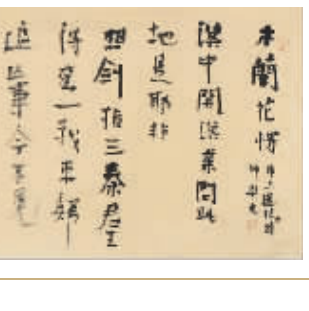 木蘭花慢
漢中開漢業問此
地是耶非
想劍指三秦君王
得意一戰東歸
追亡事今不見